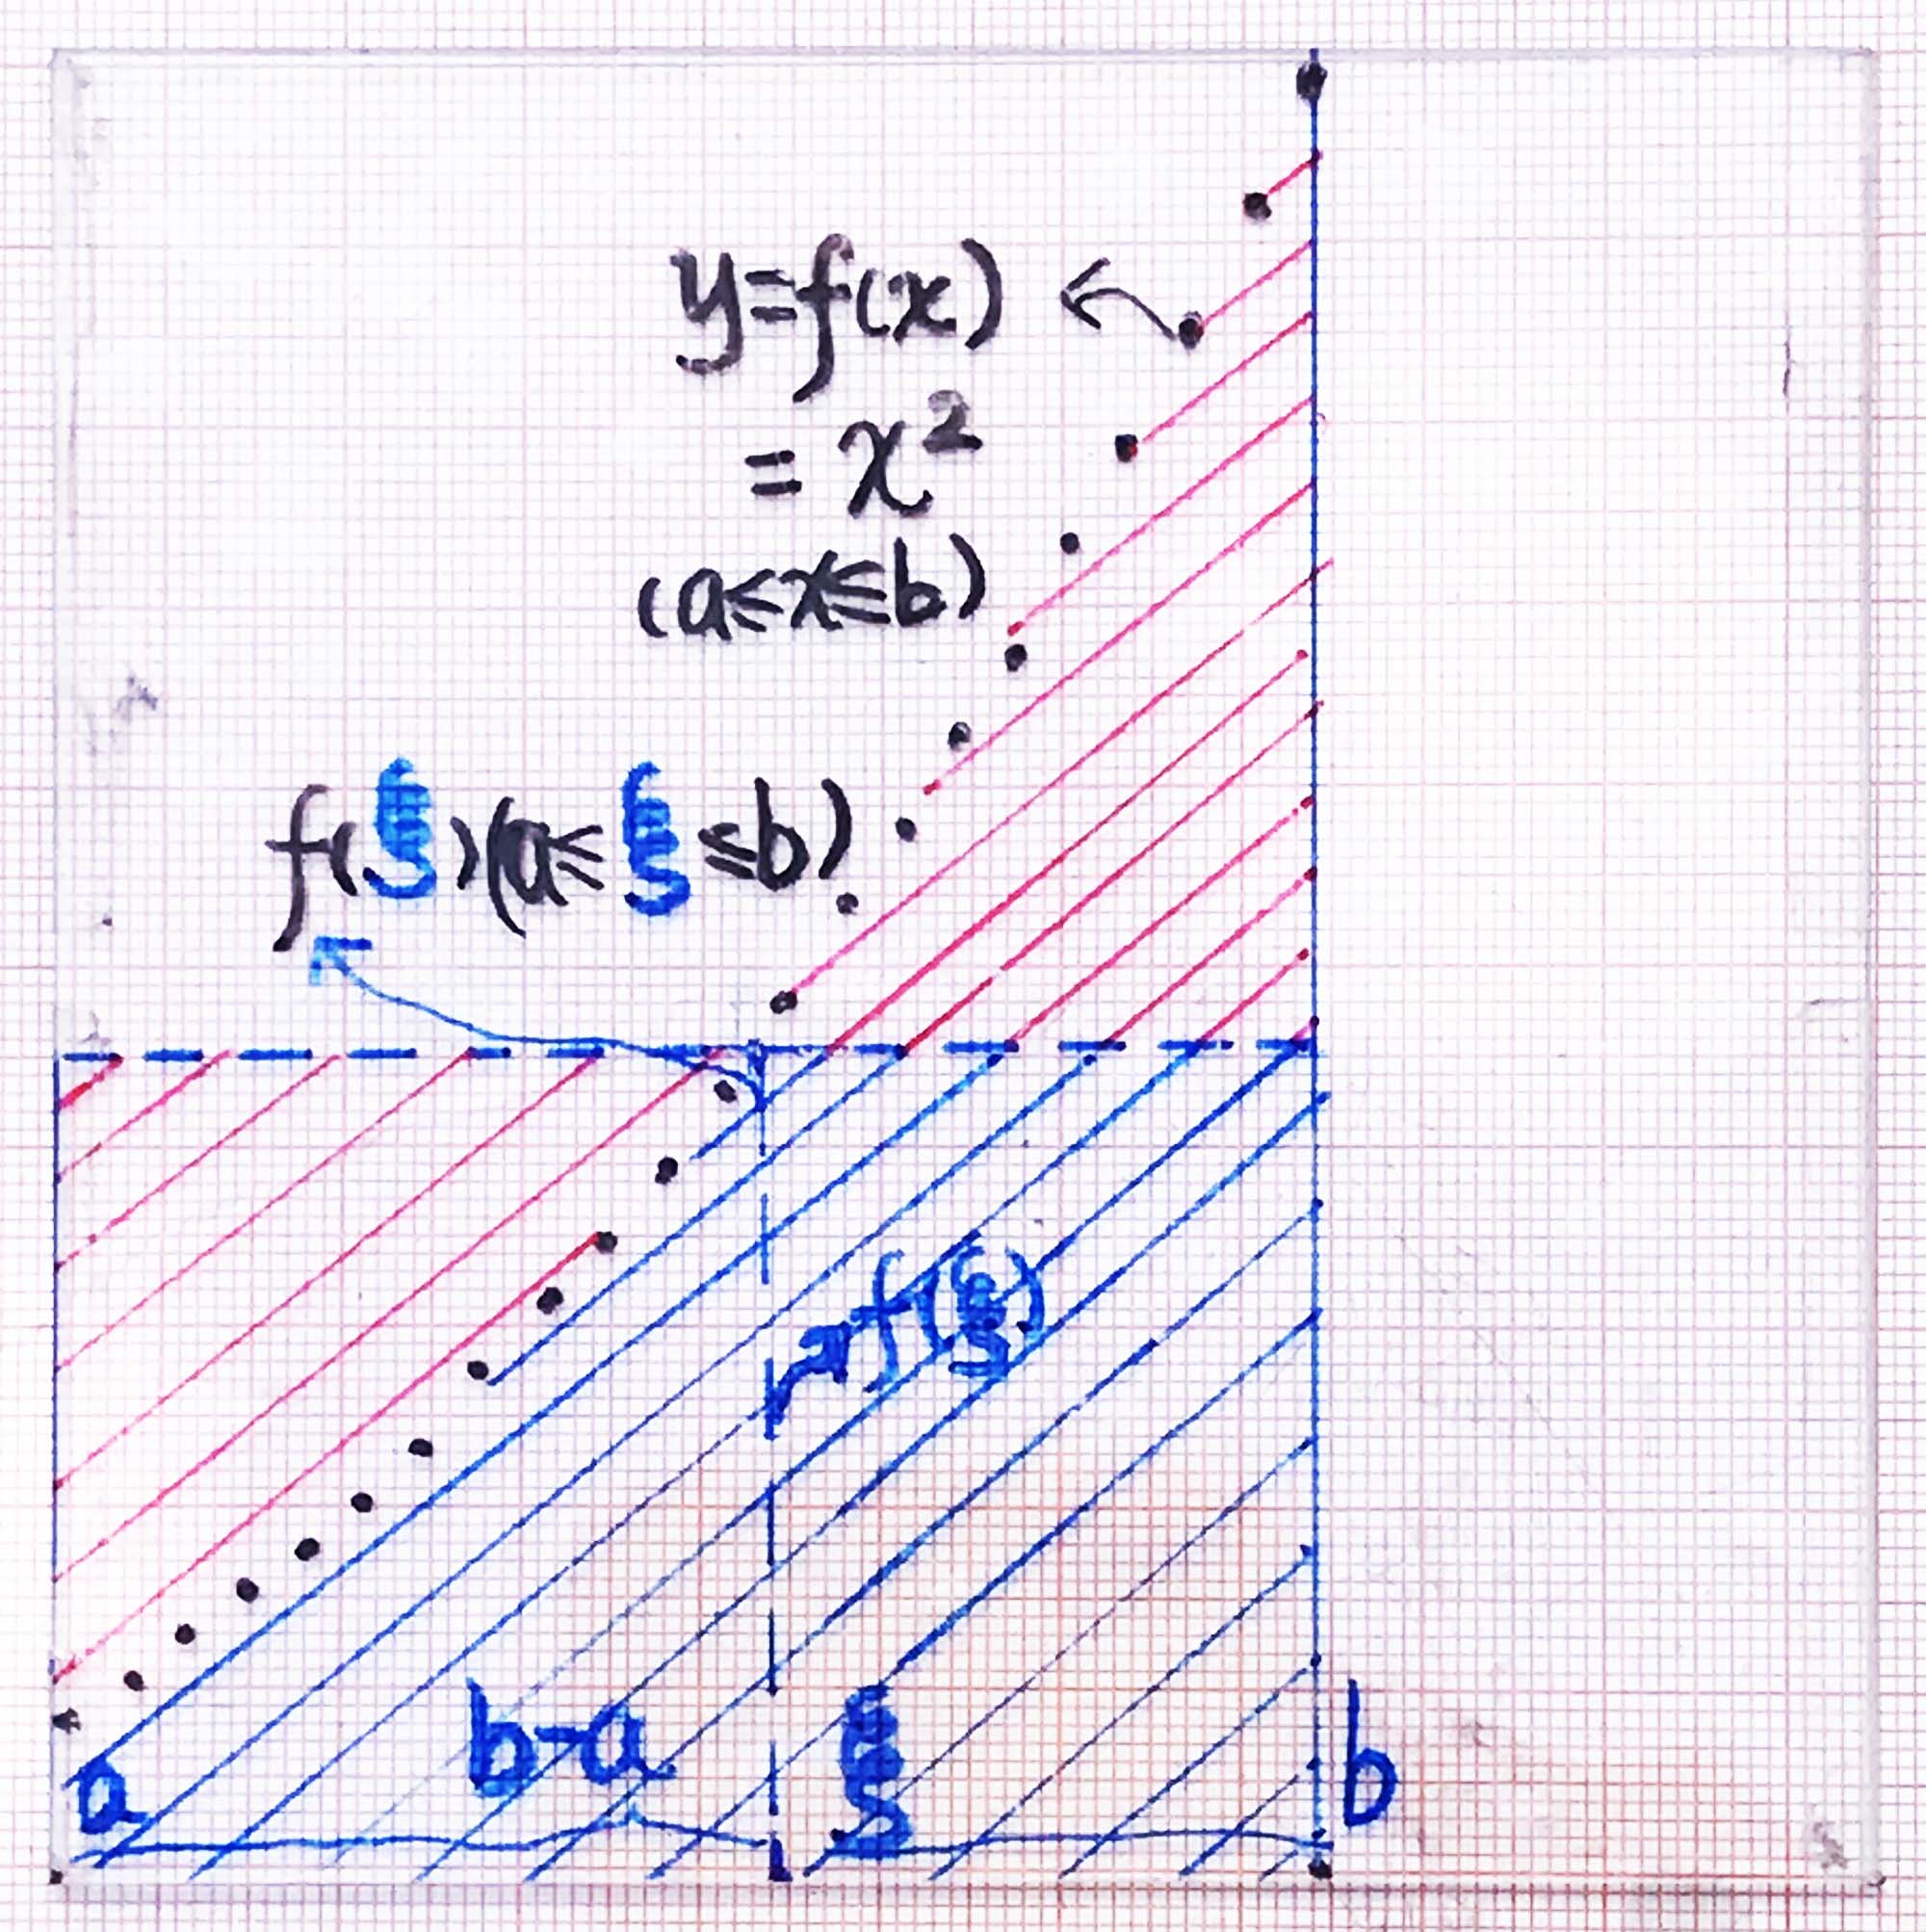 y=f(x)
= x²
(a≤x≤b)
f(ξ)(a≤ξ≤b)
f(ξ)
b-a
ξ
a
b